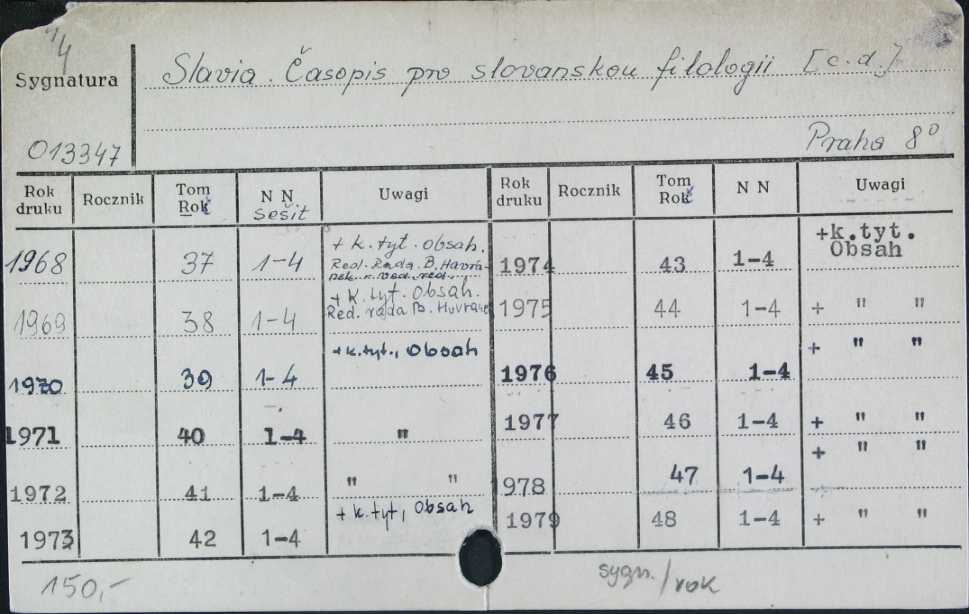 1/4
Sygnatura
Slavia. Časopis pro slovanskou filologii [c.d.]
013347
Praha 8°
Rok druku Rocznik Tom Rok N N sešit Uwagi Rok druku Rocznik Tom Rok N N Uwagi
1968 37 1-4 + k.tyt. obsah. Red. Rada B. Havrá-nek
1974 43 1-4 +k.tyt. Obsah
1969 38 1-4 + k.tyt. Obsah. Red. rada B.
1975 44 1-4 + " "
1970 39 1-4 +k.tyt., Obsah
1976 45 1-4 + " "
1971 40 1-4 "
1977 46 1-4 + " "
1972 41 1-4 " "
978 47 1-4 + " "
1973 42 1-4 + k.tyt, Obsah
1979 48 1-4 + " "
150,-
sygn./rok